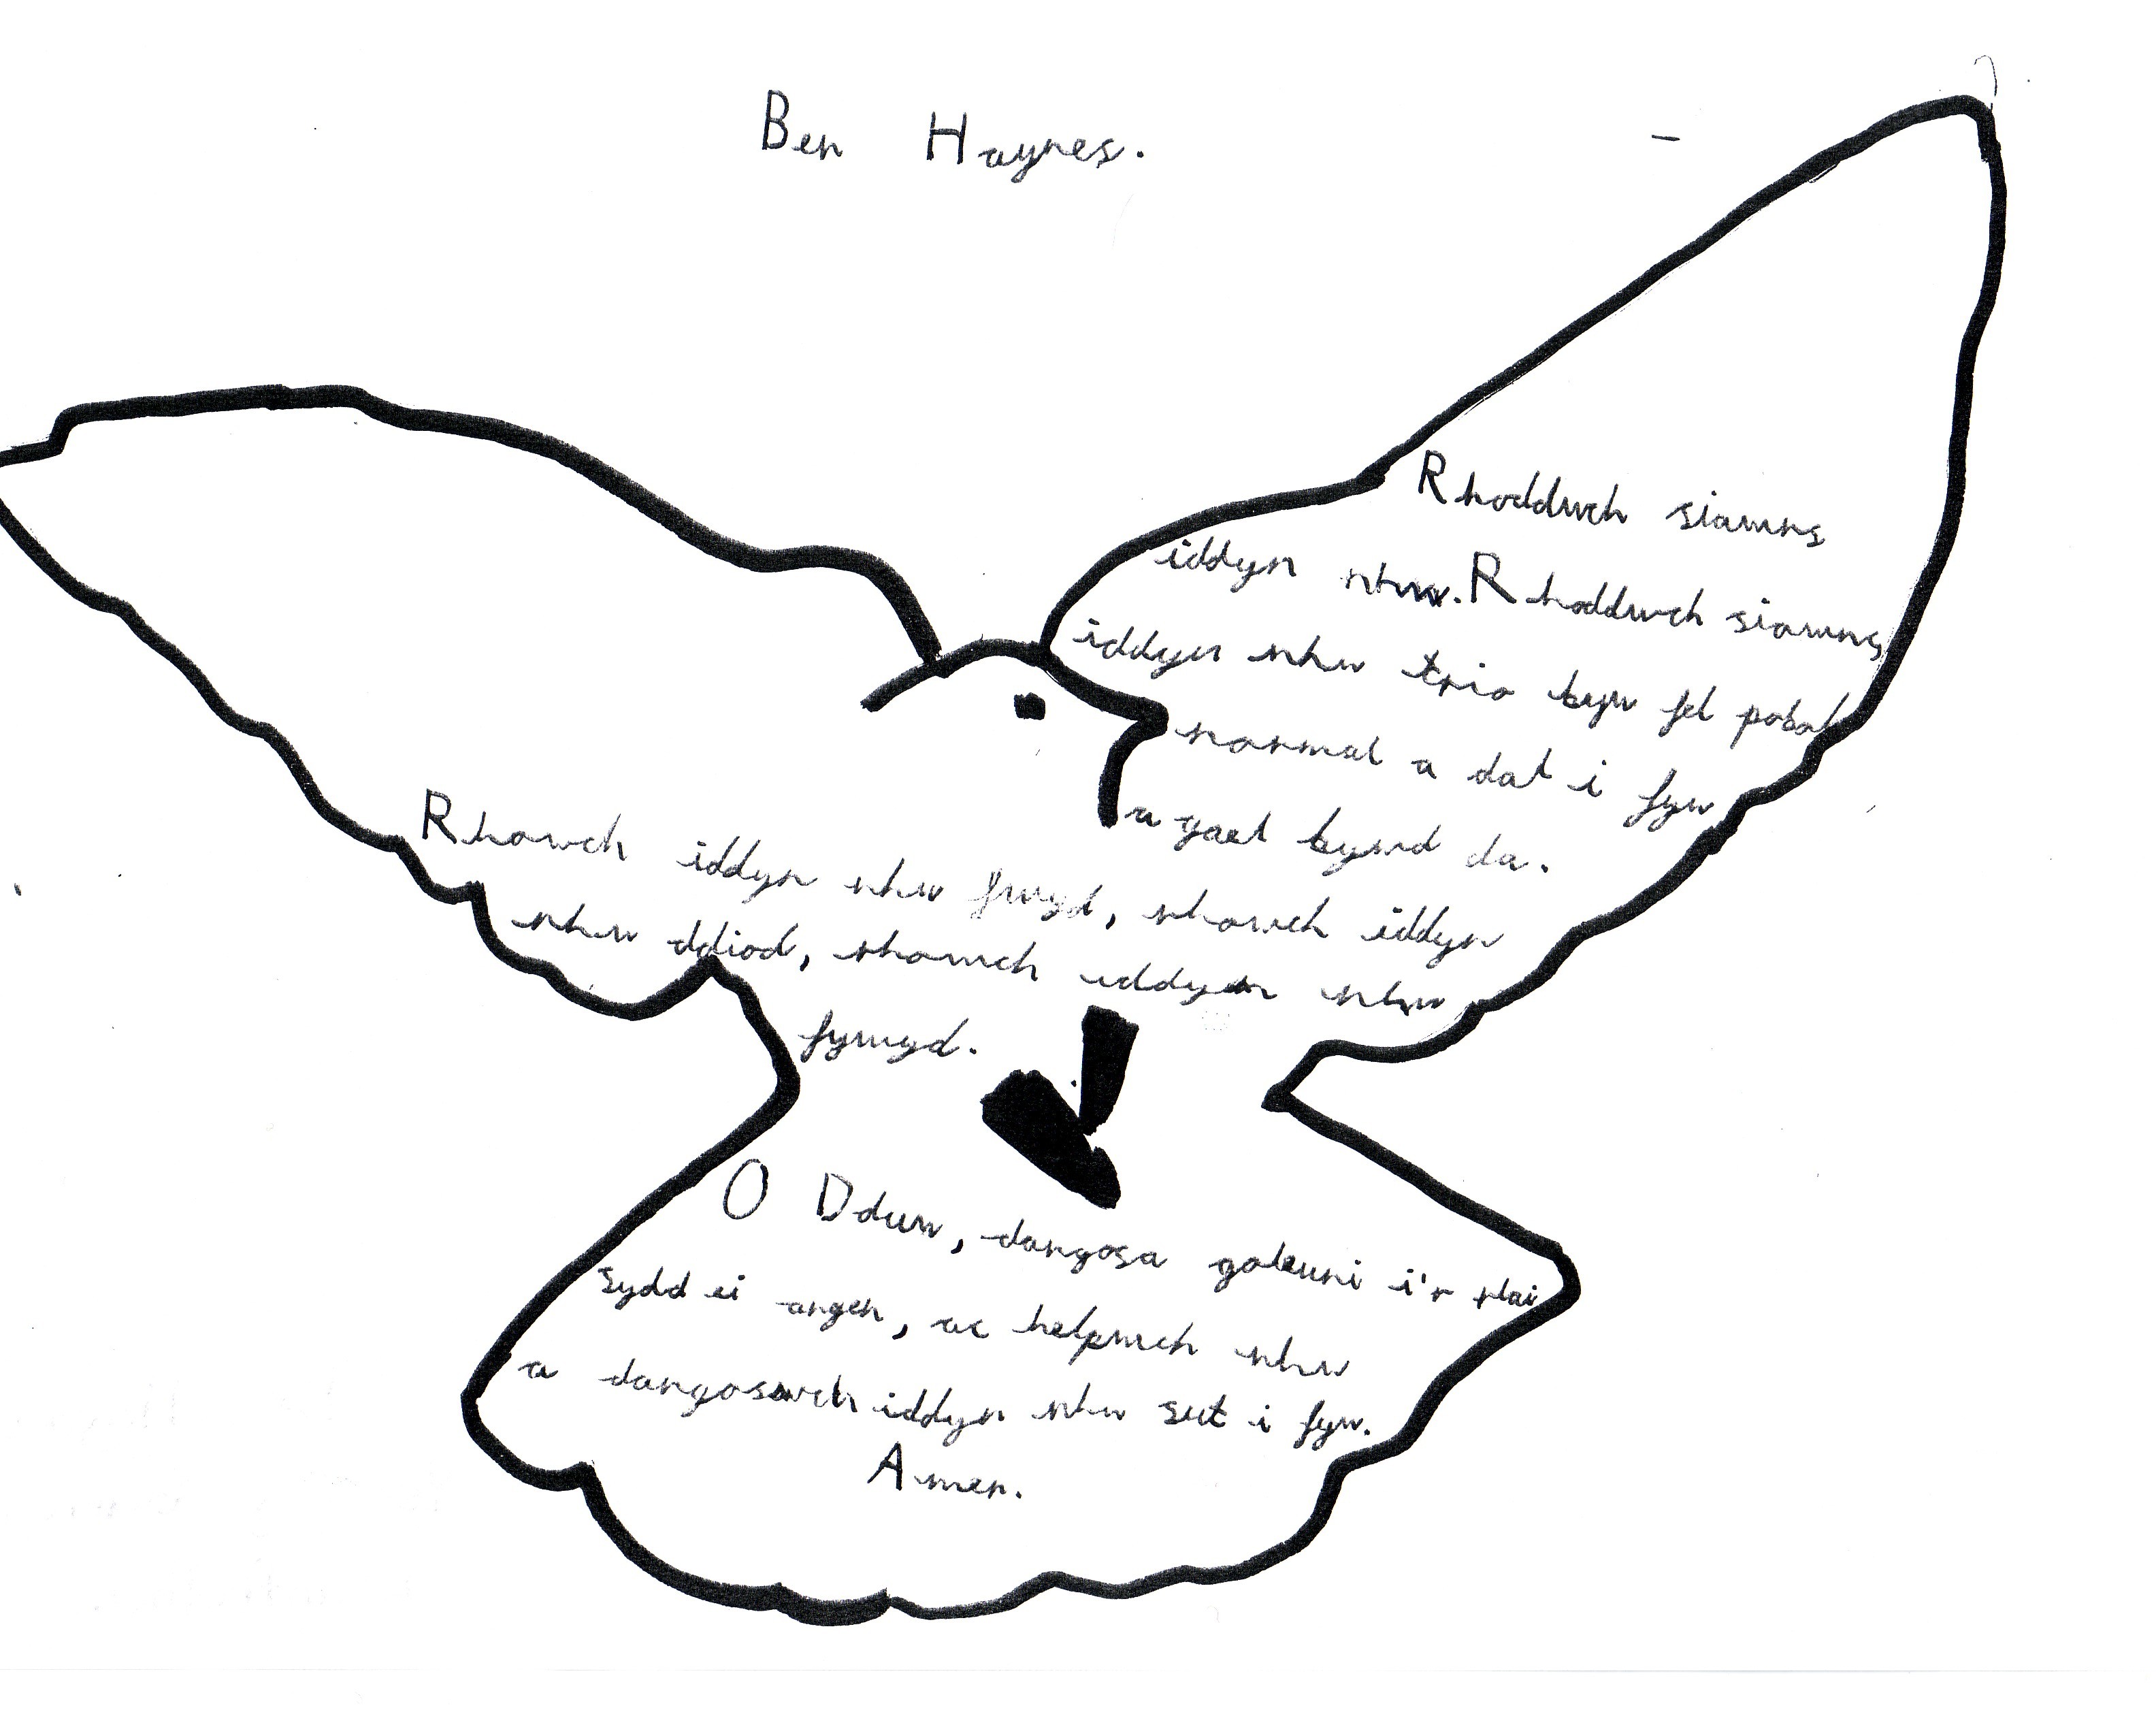 Ben Haynes.
Rhoddwch siawns
iddyn nhw. Rhoddwch siawns
iddyn nhw trio byw fel pobol
normal a dal i fyw
a gael bywd da.
Rhowch iddyn nhw fwyd, rhowch iddyn
nhw ddiod, rhowch iddyn nhw
fywyd.
O Dduw, dangosa goleuni i'r rhai
sydd ei angen, ac helpwch nhw
a dangoswch iddyn nhw sut i fyw.
Amen.